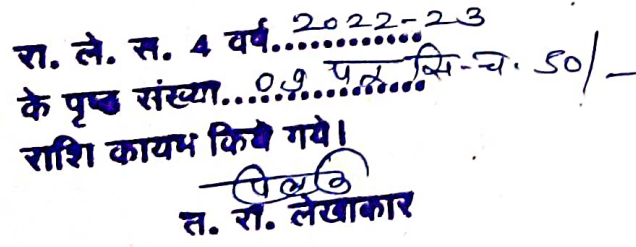 रा. ले. स. 4 वर्ष..2022-23
के पृष्ठ संख्या...09 पर सि-च. 50/-
राशि कायम किये गये।
त. रा. लेखाकार